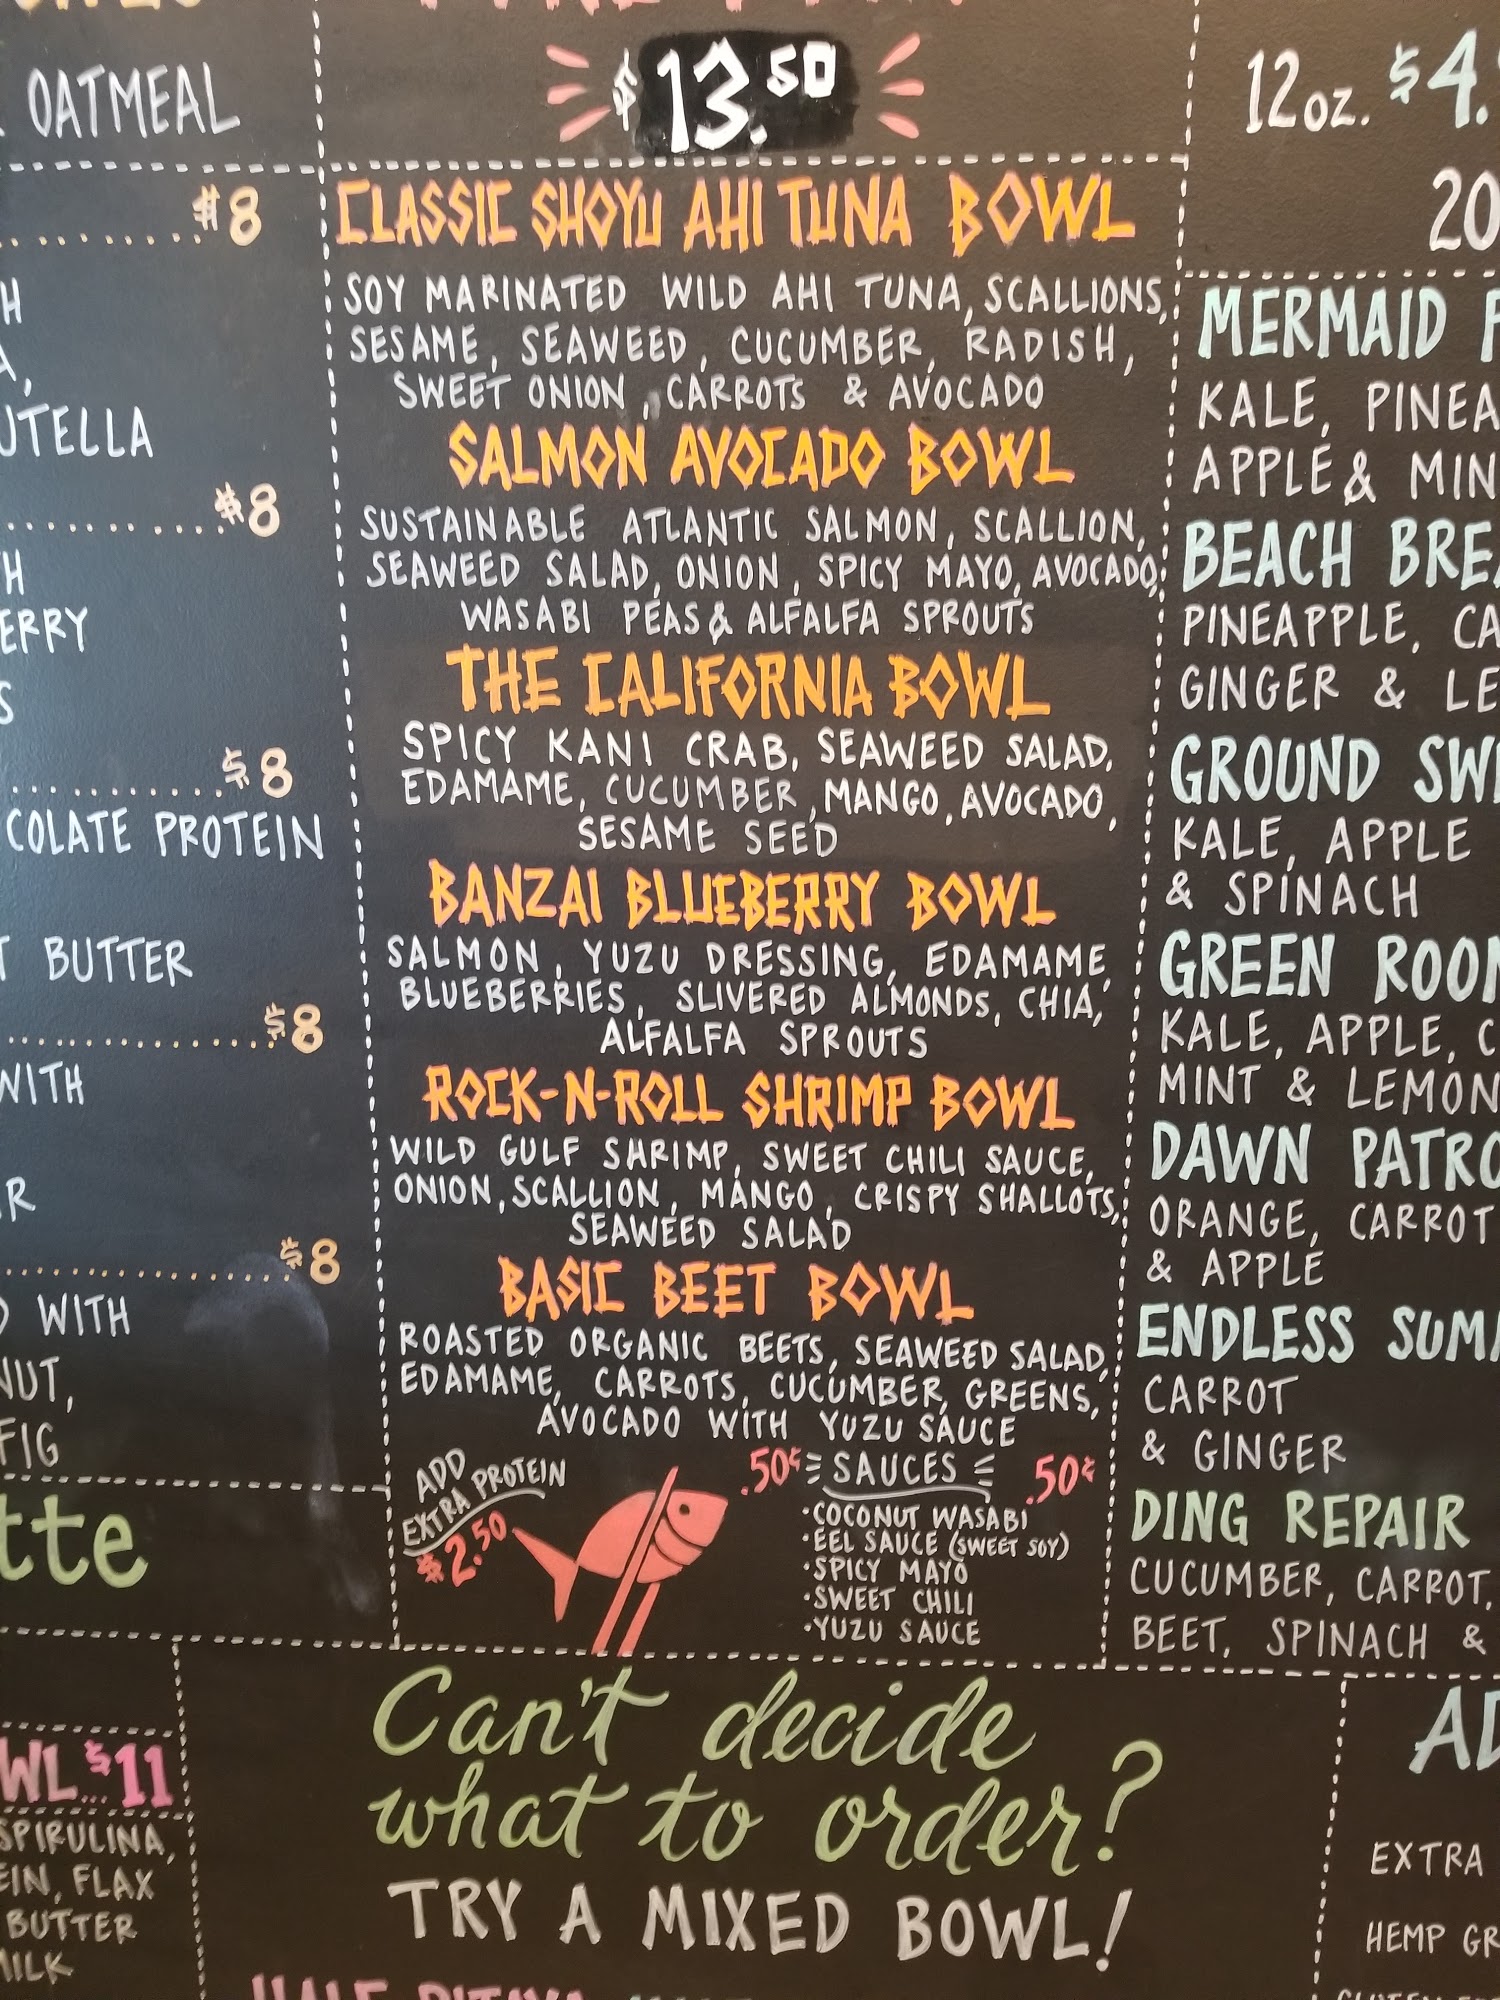 OATMEAL
$8
H
UTELLA
$8
H
ERRY
S
$8
COLATE PROTEIN
T BUTTER
$8
WITH
R
$8
WITH
NUT,
FIG
tte
WL...$11
SPIRULINA,
EIN, FLAX
BUTTER
MILK
$13.50
CLASSIC SHOYU AHI TUNA BOWL
SOY MARINATED WILD AHI TUNA, SCALLIONS,
SESAME, SEAWEED, CUCUMBER, RADISH,
SWEET ONION, CARROTS & AVOCADO
SALMON AVOCADO BOWL
SUSTAINABLE ATLANTIC SALMON, SCALLION,
SEAWEED SALAD, ONION, SPICY MAYO, AVOCADO,
WASABI PEAS & ALFALFA SPROUTS
THE CALIFORNIA BOWL
SPICY KANI CRAB, SEAWEED SALAD,
EDAMAME, CUCUMBER, MANGO, AVOCADO,
SESAME SEED
BANZAI BLUEBERRY BOWL
SALMON, YUZU DRESSING, EDAMAME,
BLUEBERRIES, SLIVERED ALMONDS, CHIA,
ALFALFA SPROUTS
ROCK-N-ROLL SHRIMP BOWL
WILD GULF SHRIMP, SWEET CHILI SAUCE,
ONION, SCALLION, MANGO, CRISPY SHALLOTS,
SEAWEED SALAD
BASIC BEET BOWL
ROASTED ORGANIC BEETS, SEAWEED SALAD,
EDAMAME, CARROTS, CUCUMBER, GREENS,
AVOCADO WITH YUZU SAUCE
ADD
EXTRA PROTEIN
$2.50
.50¢ SAUCES .50¢
·COCONUT WASABI
·EEL SAUCE (SWEET SOY)
·SPICY MAYO
·SWEET CHILI
·YUZU SAUCE
Can't decide
what to order?
TRY A MIXED BOWL!
12oz. $4.
20
MERMAID F
KALE, PINEA
APPLE & MIN
BEACH BREA
PINEAPPLE, CA
GINGER & LE
GROUND SW
KALE, APPLE
& SPINACH
GREEN ROOM
KALE, APPLE, C
MINT & LEMON
DAWN PATRO
ORANGE, CARROT
& APPLE
ENDLESS SUMM
CARROT
& GINGER
DING REPAIR
CUCUMBER, CARROT,
BEET, SPINACH &
AD
EXTRA
HEMP GR